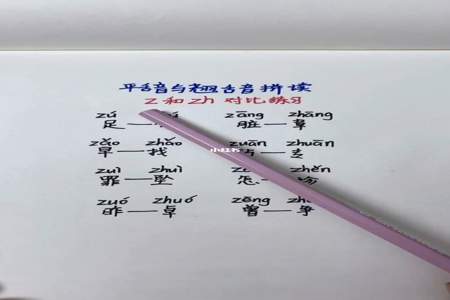 平舌音与翘舌音拼读
z和zh 对比练习
zú zāng zhāng
足— 脏—章
zǎo zhǎo zuān zhuān
早—找 —专
zuì zhuì zhěn
罪—坠 怎—
zuó zhuó zēng
昨—卓 曾—争
小红书